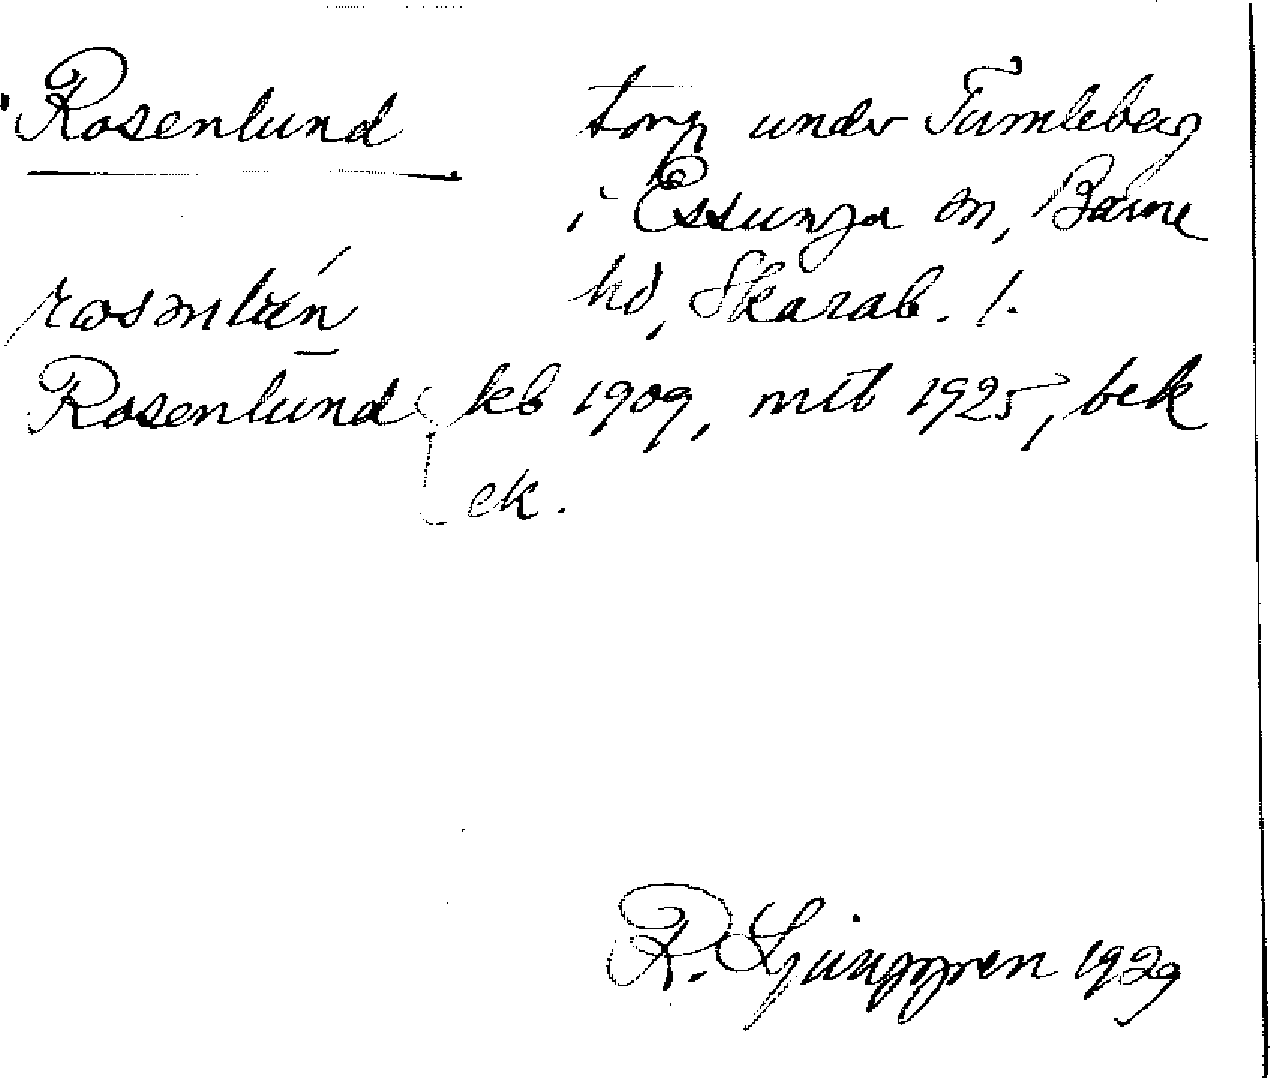 Rosenlund torp under Tumleberg
i Essunga sn, Barne
hd, Skarab. l.
Rosenlund { kb 1909, mtl 1925, bek
ek.
R. Ljunggren 1929